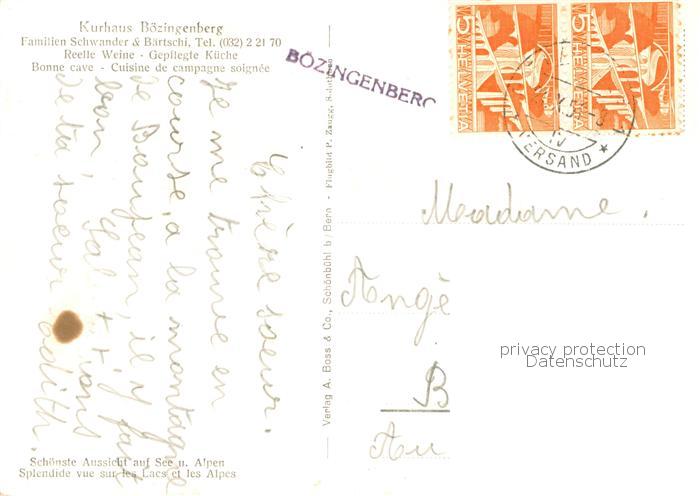 Kurhaus Bözingenberg
Familien Schwander & Bärtschi, Tel. (032) 2 21 70
Reelle Weine - Gepflegte Küche
Bonne cave - Cuisine de campagne soignée
BÖZINGENBERG
5 HELVETIA
5 HELVETIA
VERSAND
Chère soeur.
Je me trouve en
course, a la montagne
de Boujean, il y fait
bon,
de ta soeur Edith.
Verlag A. Boss & Co., Schönbühl b/Bern - Flugbild P. Zaugg, Solothurn
Madame.
Angè
B
Au
privacy protection
Datenschutz
Schönste Aussicht auf See u. Alpen
Splendide vue sur les Lacs et les Alpes